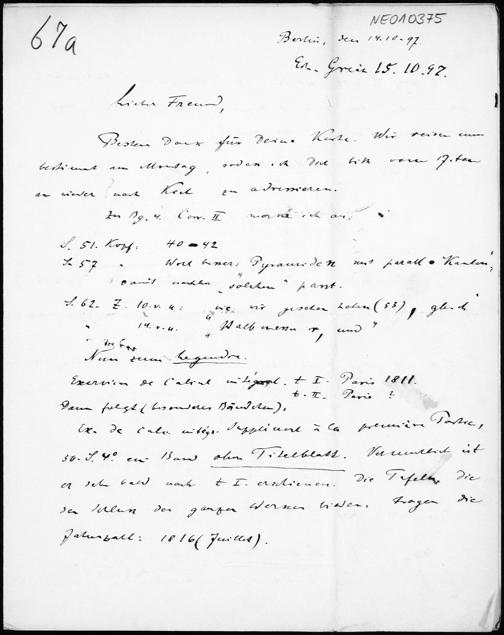 67a
NE010375
Berlin, den 14.10.97.
15.10.97.
Lieber Freund,
Besten Dank für Deine Karte. Wir reisen nun
bestimmt am Montag, sodass ich Dich bitte vom 17. ten
an wieder nach Kiel zu adressieren.
Zu Bg. 4. Corr. II merke ich an:
S. 51. Kopf: 40-42
S. 57 " Wort besser: Pyramiden mit parall. Kanten,
damit nachher "solchen" passt.
S. 62. Z. 10.v.u: "wie wir gesehen haben (53), gleich"
" 14.v.u. " Halbmesser r, und "
Nun zum Legendre.
Exercices de Calcul intégral. t I. Paris 1811.
t. II. Paris ?
Dann folgt (besonderes Bändchen).
Ex. de Calc. intégr. Supplément à la première Partie,
50. S. 4° ein Band ohne Titelblatt. Vermutlich ist
er sehr bald nach t I. erschienen. Die Tafeln, die
den Schluss des ganzen Werkes bilden, tragen die
Jahreszahl: 1816 (Juillet).